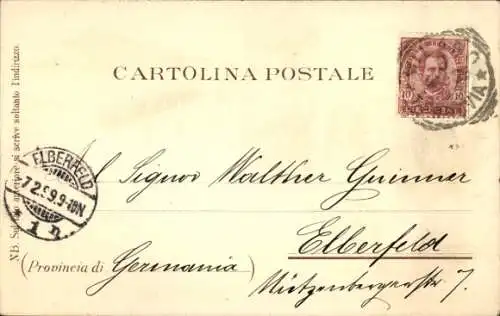 CARTOLINA POSTALE
N.B. Sul lato anteriore si scrive soltanto l'indirizzo.
ELBERFELD
7 2. 99. 9-10N
1 n.
Al Signor Walther Guimmer
Elberfeld
(Provincia di Germania)
7.